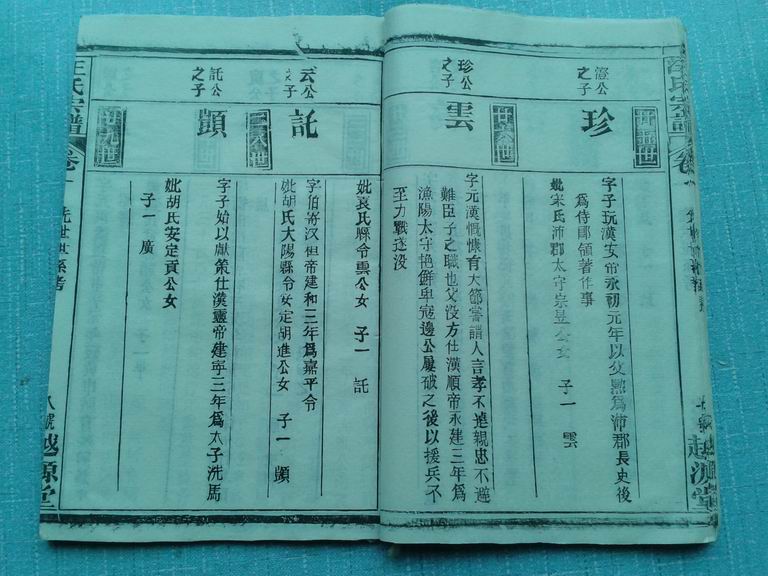 汪氏宗譜
卷一
越源堂
卅五世
澄公
之子
珍
字子玩漢安帝永初元年以父勲為沛郡長史後
為侍郎領著作事
妣宋氏沛郡太守宗昱公女 子一 雲
卅六世
珍公
之子
雲
字元漢慨慷育大節嘗謂人言孝不遶親忠不避
難臣子之職也父没方仕漢順帝永建三年為
漁陽太守艳鮮卑寇邊公屢破之後以援兵不
至力戰遂没
妣袁氏縣令雲公女 子一 託
卅八世
云公
之子
託
字伯寄汉但帝建和三年為嘉平令
妣胡氏大陽縣令安定胡進公女 子一 顗
卅九世
託公
之子
顗
字子始以獻策仕漢靈帝建寧三年為太子洗馬
妣胡氏安定貢公女
子一 廣
汪氏宗譜
卷一
先世世系考
八號
越源堂